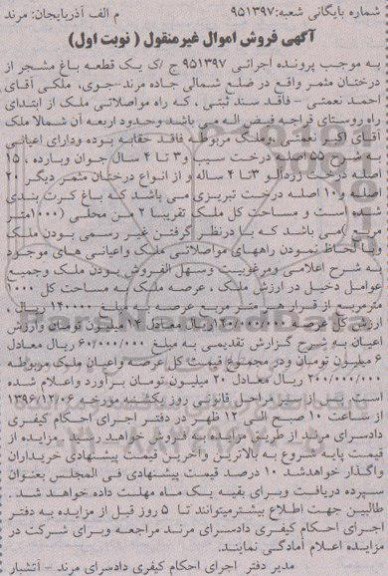 شماره بایگانی شعبه:۹۵۱۳۹۷ م الف آذربایجان: مرند
آگهی فروش اموال غیرمنقول ( نوبت اول)
به موجب پرونده اجرائی ۹۵۱۳۹۷ ج /ک یک قطعه باغ مشجر از
درختان مثمر واقع در ضلع شمالی جاده مرند-خوی، ملکی آقای
احمد نعمتی - فاقد سند ثبتی ، که راه مواصلاتی ملک از ابتدای
راه روستای قراجه فیض اله می باشد وحدود اربعه آن شمالا ملک
آقای نعمتی ,وملک مربوطه فاقد حقابه بوده ودارای اعیانی
به شرح ۵۵ اصله درخت سیب و۳ تا ۴ سال جوان وبارده ، ۱۵
اصله درخت زردآلو ۳تا ۴ ساله و از انواع درختان مثمر دیگر ۲۰
اصله و۱۰ اصله درخت تبریزی می باشد که باغ کرت بندی
شده است و مساحت کل ملک تقریبا ۲ من محلی (۱۰۰۰متر
مربع )می باشد که با درنظر گرفتن غیر رسمی بودن ملک
وبا لحاظ نمودن راههای مواصلاتی ملک واعیانی های موجود
به شرح اعلامی ومرغوبیت وسهل الفروش بودن ملک وجمیع
عوامل دخیل در ارزش ملک ، عرصه ملک به مساحت کل ۱۰۰۰
مترمربع از قرار هر متر مربع عرصه به مبلغ ۱۴۰۰۰۰ ریال ،
ارزش کل عرصه ۱۴۰/۰۰۰/۰۰۰ریال معادل ۱۴ میلیون تومان وارزش
اعیان به شرح گزارش تقدیمی به مبلغ ۶۰/۰۰۰/۰۰۰ ریال معادل
۶ میلیون تومان ودر مجموع قیمت کل عرصه واعیان ملک مربوطه
۲۰۰/۰۰۰/۰۰۰ ریال معادل ۲۰ میلیون تومان برآورد واعلام شده
است. پس از طی مراحل قانونی روز یکشنبه مورخه ۱۳۹۶/۱۲/۰۶
از ساعت ۱۰ صبح الی ۱۲ ظهر در دفتر اجرای احکام کیفری
دادسرای مرند از طریق مزایده به فروش خواهد رسید. مزایده از
قیمت پایه شروع به بالاترین وآخرین قیمت پیشنهادی خریداران
واگذار خواهدشد. ۱۰ درصد قیمت پیشنهادی فی المجلس بعنوان
سپرده دریافت وبرای بقیه یک ماه مهلت داده خواهد شد .
طالبین جهت اطلاع بیشترمیتوانند تا ۵ روز قبل از مزایده به دفتر
اجرای احکام کیفری دادسرای مرند مراجعه وبرای شرکت در
مزایده اعلام آمادگی نمایند.
مدیر دفتر اجرای احکام کیفری دادسرای مرند - آتشبار
ParsNamadData